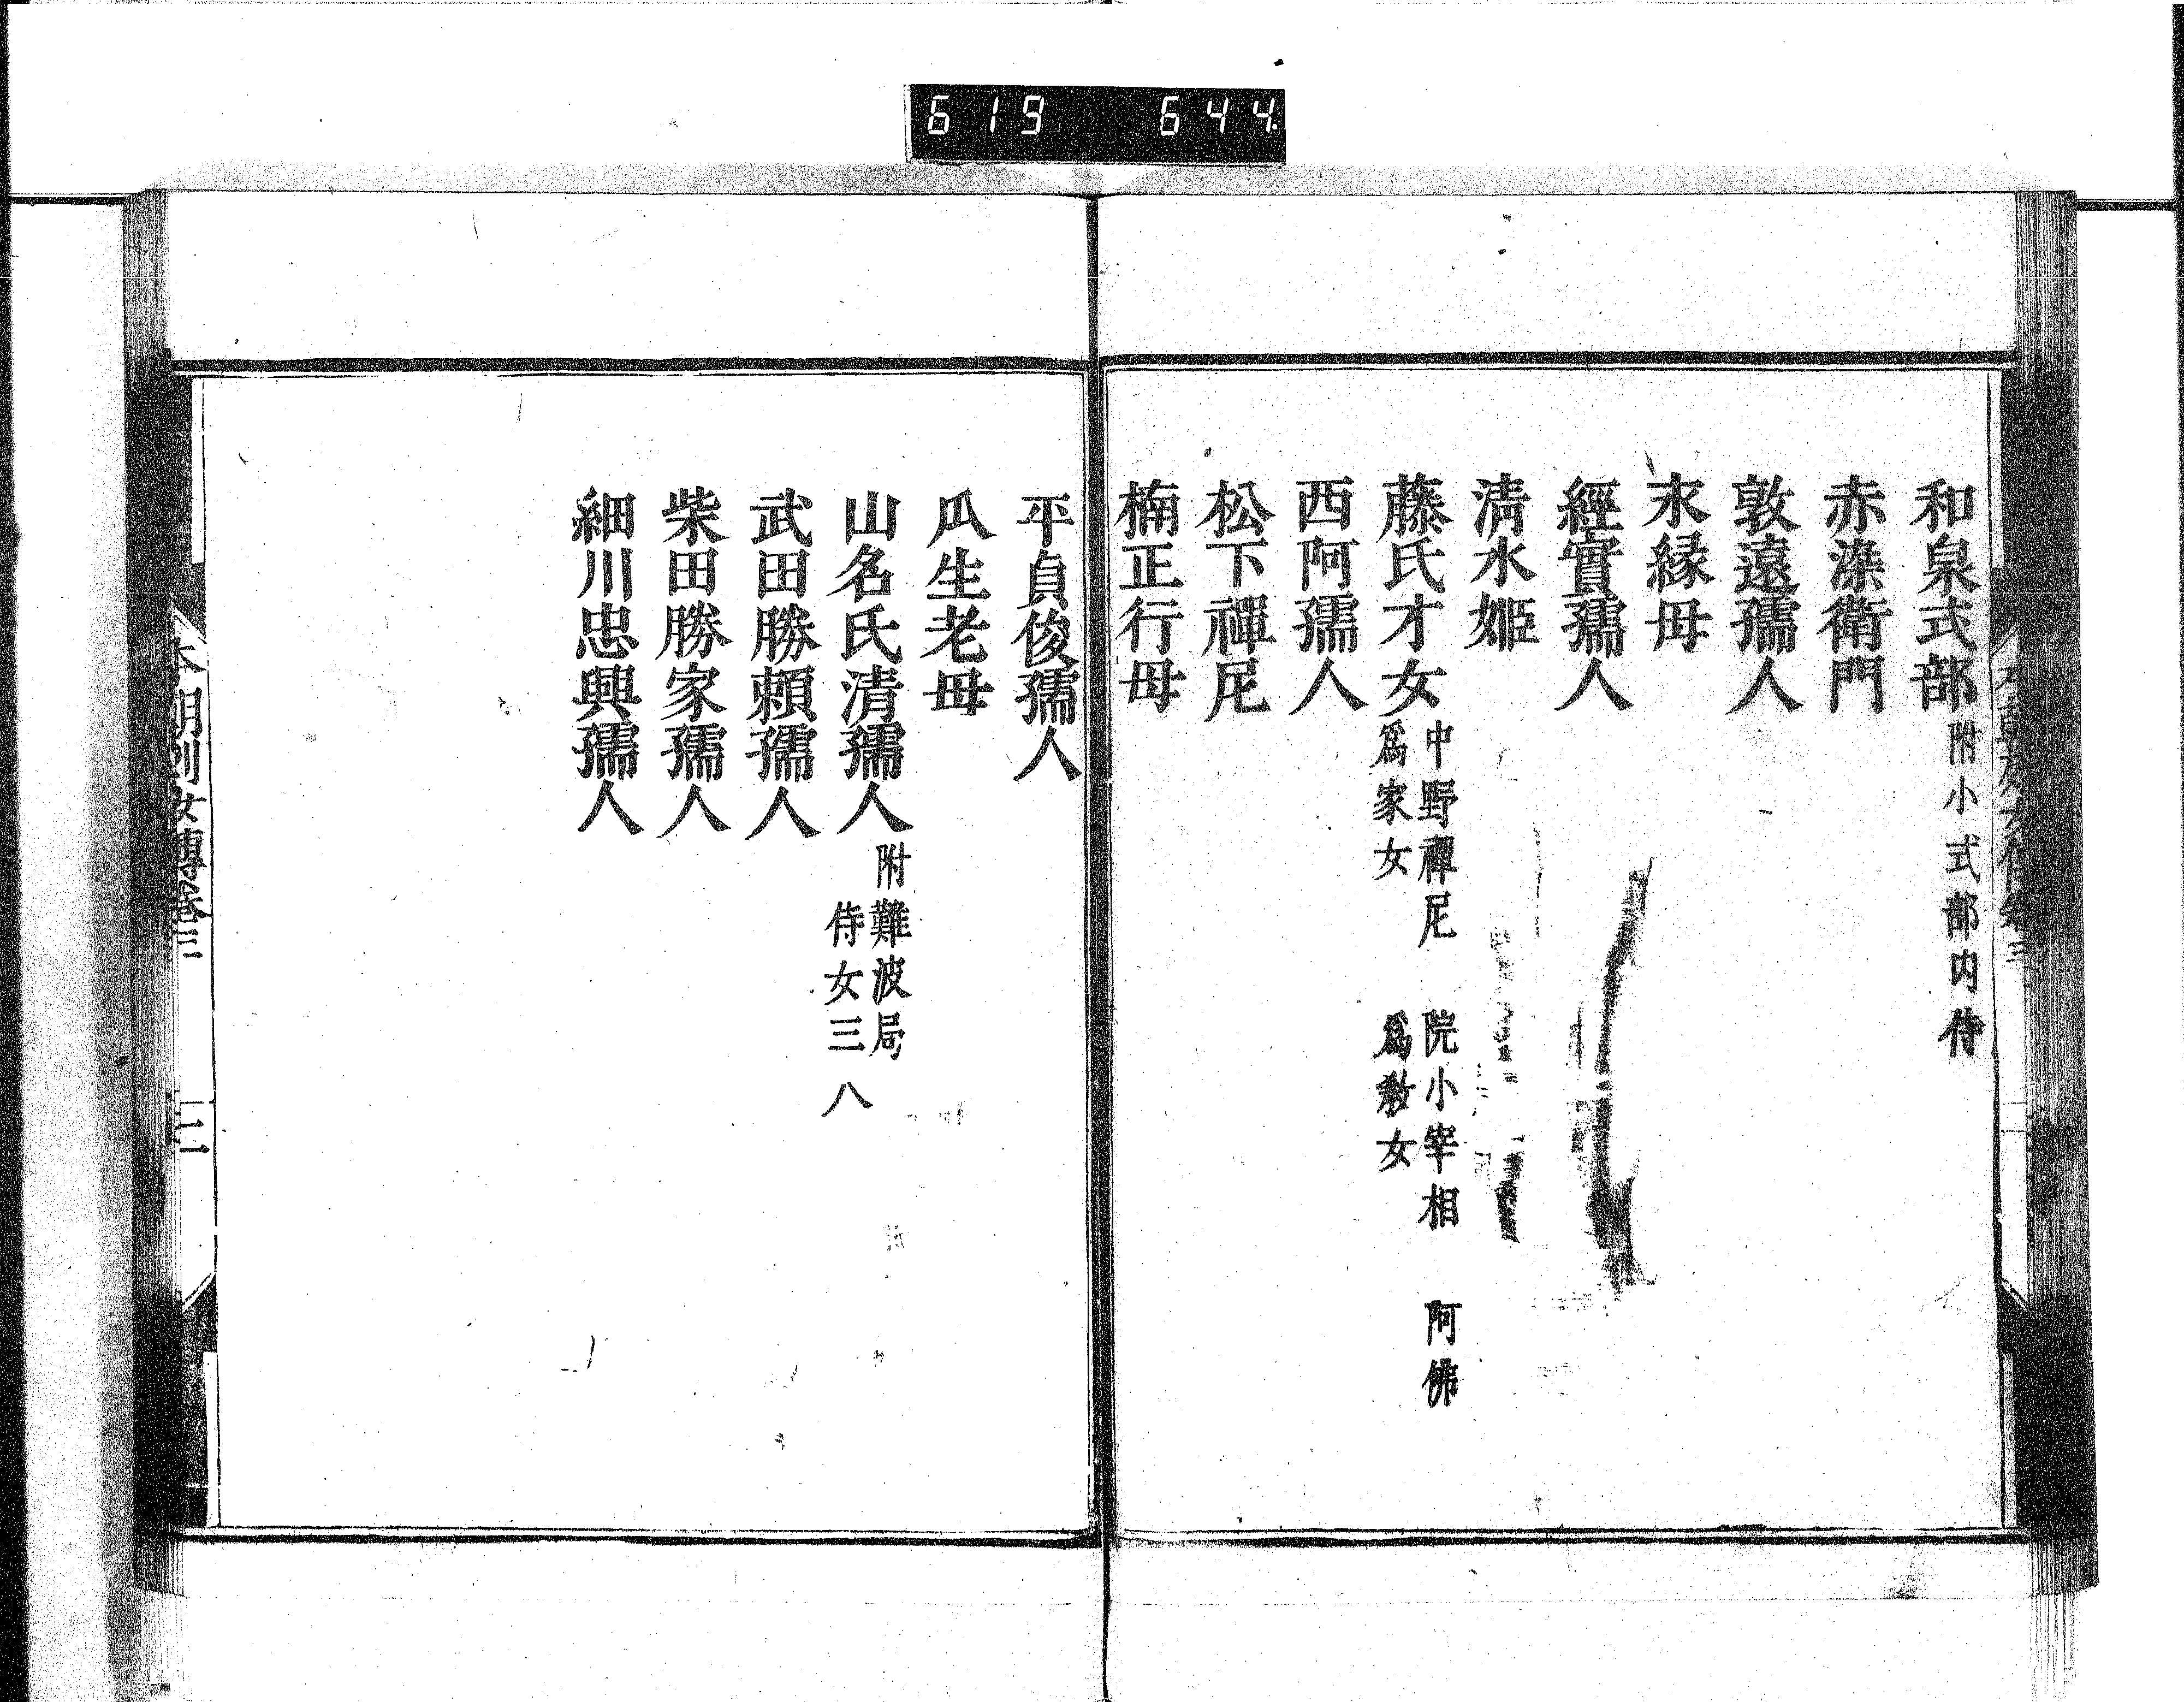 619 644
和泉式部 附小式部内侍
赤染衛門
敦遠孺人
永縁母
經實孺人
淸水姬
藤氏才女 中野禪尼 院小宰相 阿佛
爲家女 爲敎女
西阿孺人
松下禪尼
楠正行母
平貞俊孺人
瓜生老母
山名氏清孺人 附難波局
侍女三八
武田勝頼孺人
柴田勝家孺人
細川忠興孺人
本朝列女傳卷三